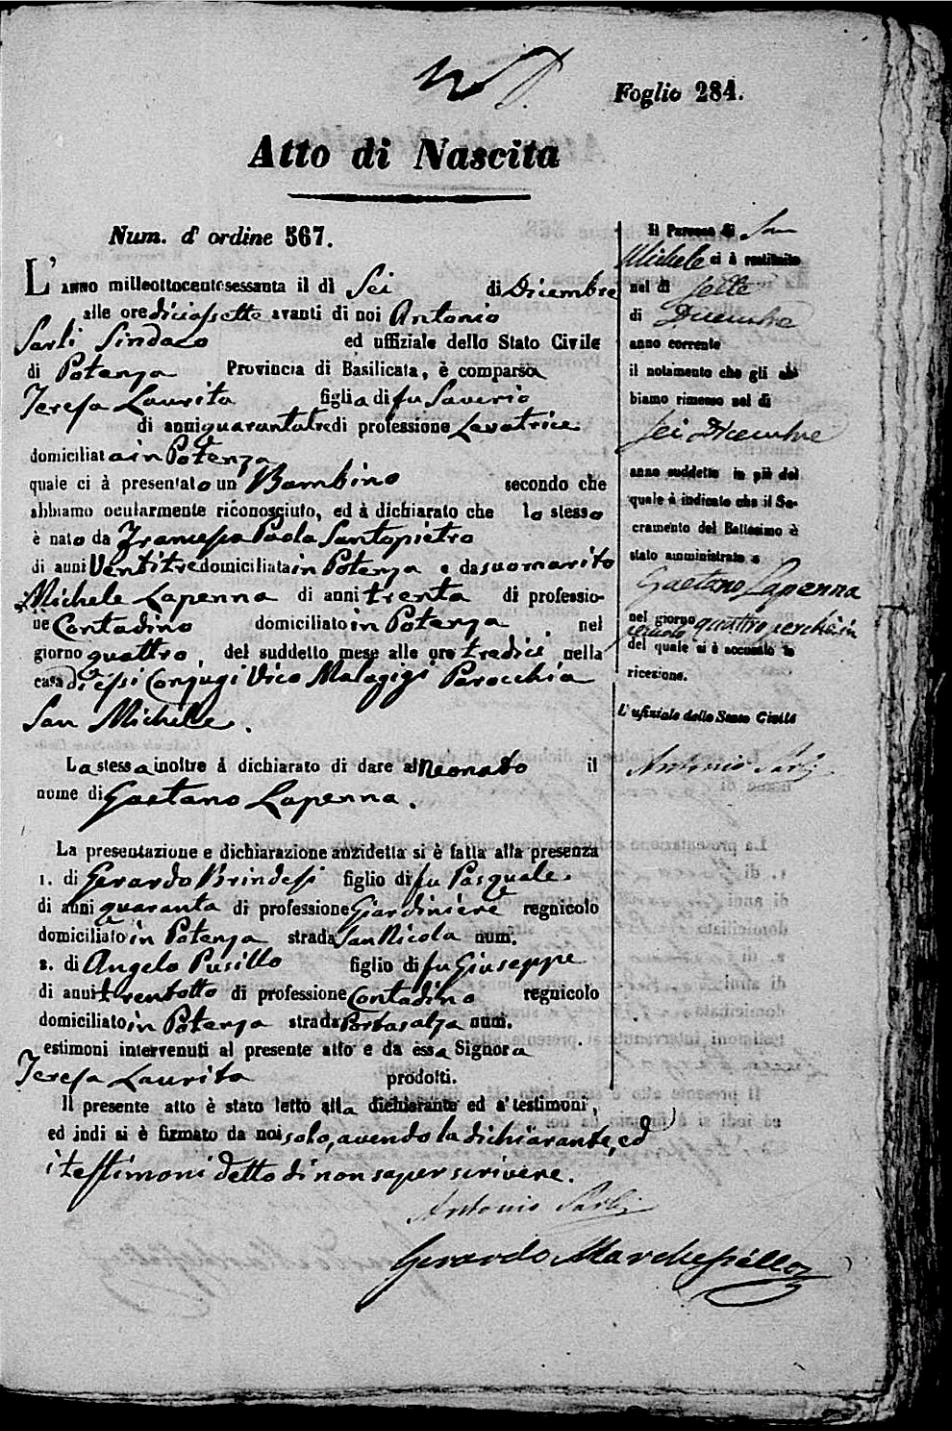 Foglio 284.
Atto di Nascita
Num. d' ordine 567.
L' anno milleottocentosessanta il dì Sei di Dicembre
alle ore diciassette avanti di noi Antonio
Sarli Sindaco ed uffiziale dello Stato Civile
di Potenza Provincia di Basilicata, è comparsa
Teresa Laurita figlia di fu Saverio
di anni quarantatre di professione Levatrice
domiciliata in Potenza
quale ci à presentato un Bambino secondo che
abbiamo ocularmente riconosciuto, ed à dichiarato che lo stesso
è nato da Francesca Paola Santopietro
di anni Ventitre domiciliata in Potenza e da suo marito
Michele Lapenna di anni trenta di professio-
ne Contadino domiciliato in Potenza nel
giorno quattro, del suddetto mese alle ore tredici nella
casa di essi Conjugi Vico Malagigi Parocchia
San Michele.
La stessa inoltre à dichiarato di dare al neonato il
nome di Gaetano Lapenna.
La presentazione e dichiarazione anzidetta si è fatta alla presenza
1. di Gerardo Brindesi figlio di fu Pasquale.
di anni quaranta di professione Giardiniere regnicolo
domiciliato in Potenza strada San Nicola num.
2. di Angelo Pusillo figlio di fu Giuseppe
di anni trentotto di professione Contadino regnicolo
domiciliato in Potenza strada Portasalza num.
estimoni intervenuti al presente atto e da essa Signora
Teresa Laurita prodotti.
Il presente atto è stato letto alla dichiarante ed a' testimoni,
ed indi si è firmato da noi solo, avendo la dichiarante, ed
i testimoni detto di non saper scrivere.
Antonio Sarli
Gerardo Marchesiello
Il Parroco di San
Michele ci à restituito
nel dì Sette
di Dicembre
anno corrente
il notamento che gli ab-
biamo rimesso nel dì
Sei Dicembre
anno suddetto in piè del
quale à indicato che il Sa-
cramento del Battesimo è
stato amministrato a
Gaetano Lapenna
nel giorno quattro perchè in
pericolo
del quale si è accusato la
ricezione.
L' ufiziale dello Stato Civile
Antonio Sarli